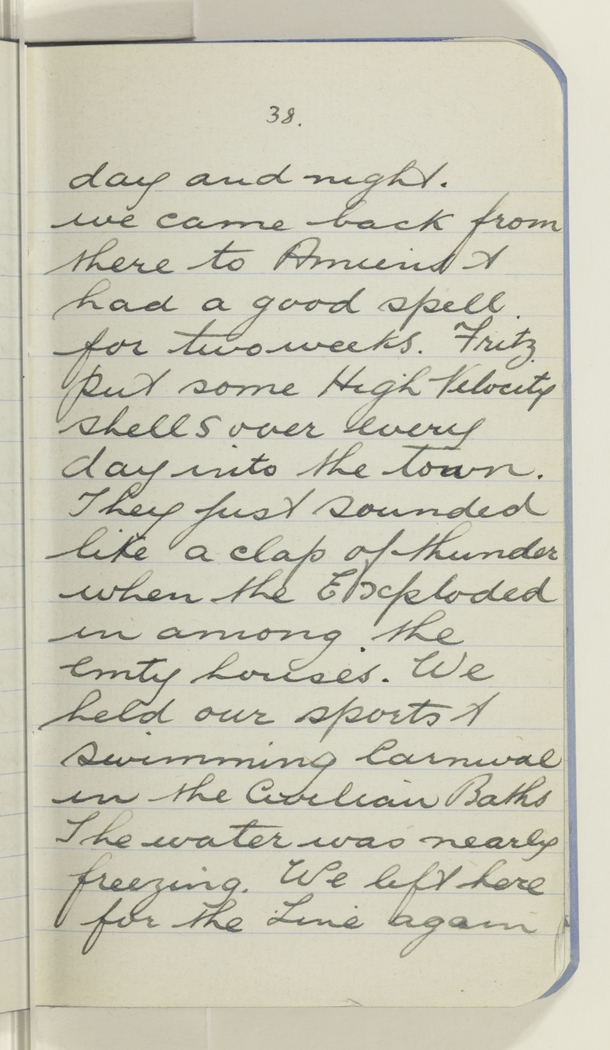 38.
day and night.
we came back from
there to Amiens &
had a good spell.
for two weeks. Fritz
put some High Velocity
shells over every
day into the town.
They just sounded
like a clap of thunder
when the Exploded
in among the
emty houses. We
held our sports &
swimming Carnival
in the Civilian Baths
The water was nearly
freezing. We left here
for the Line again